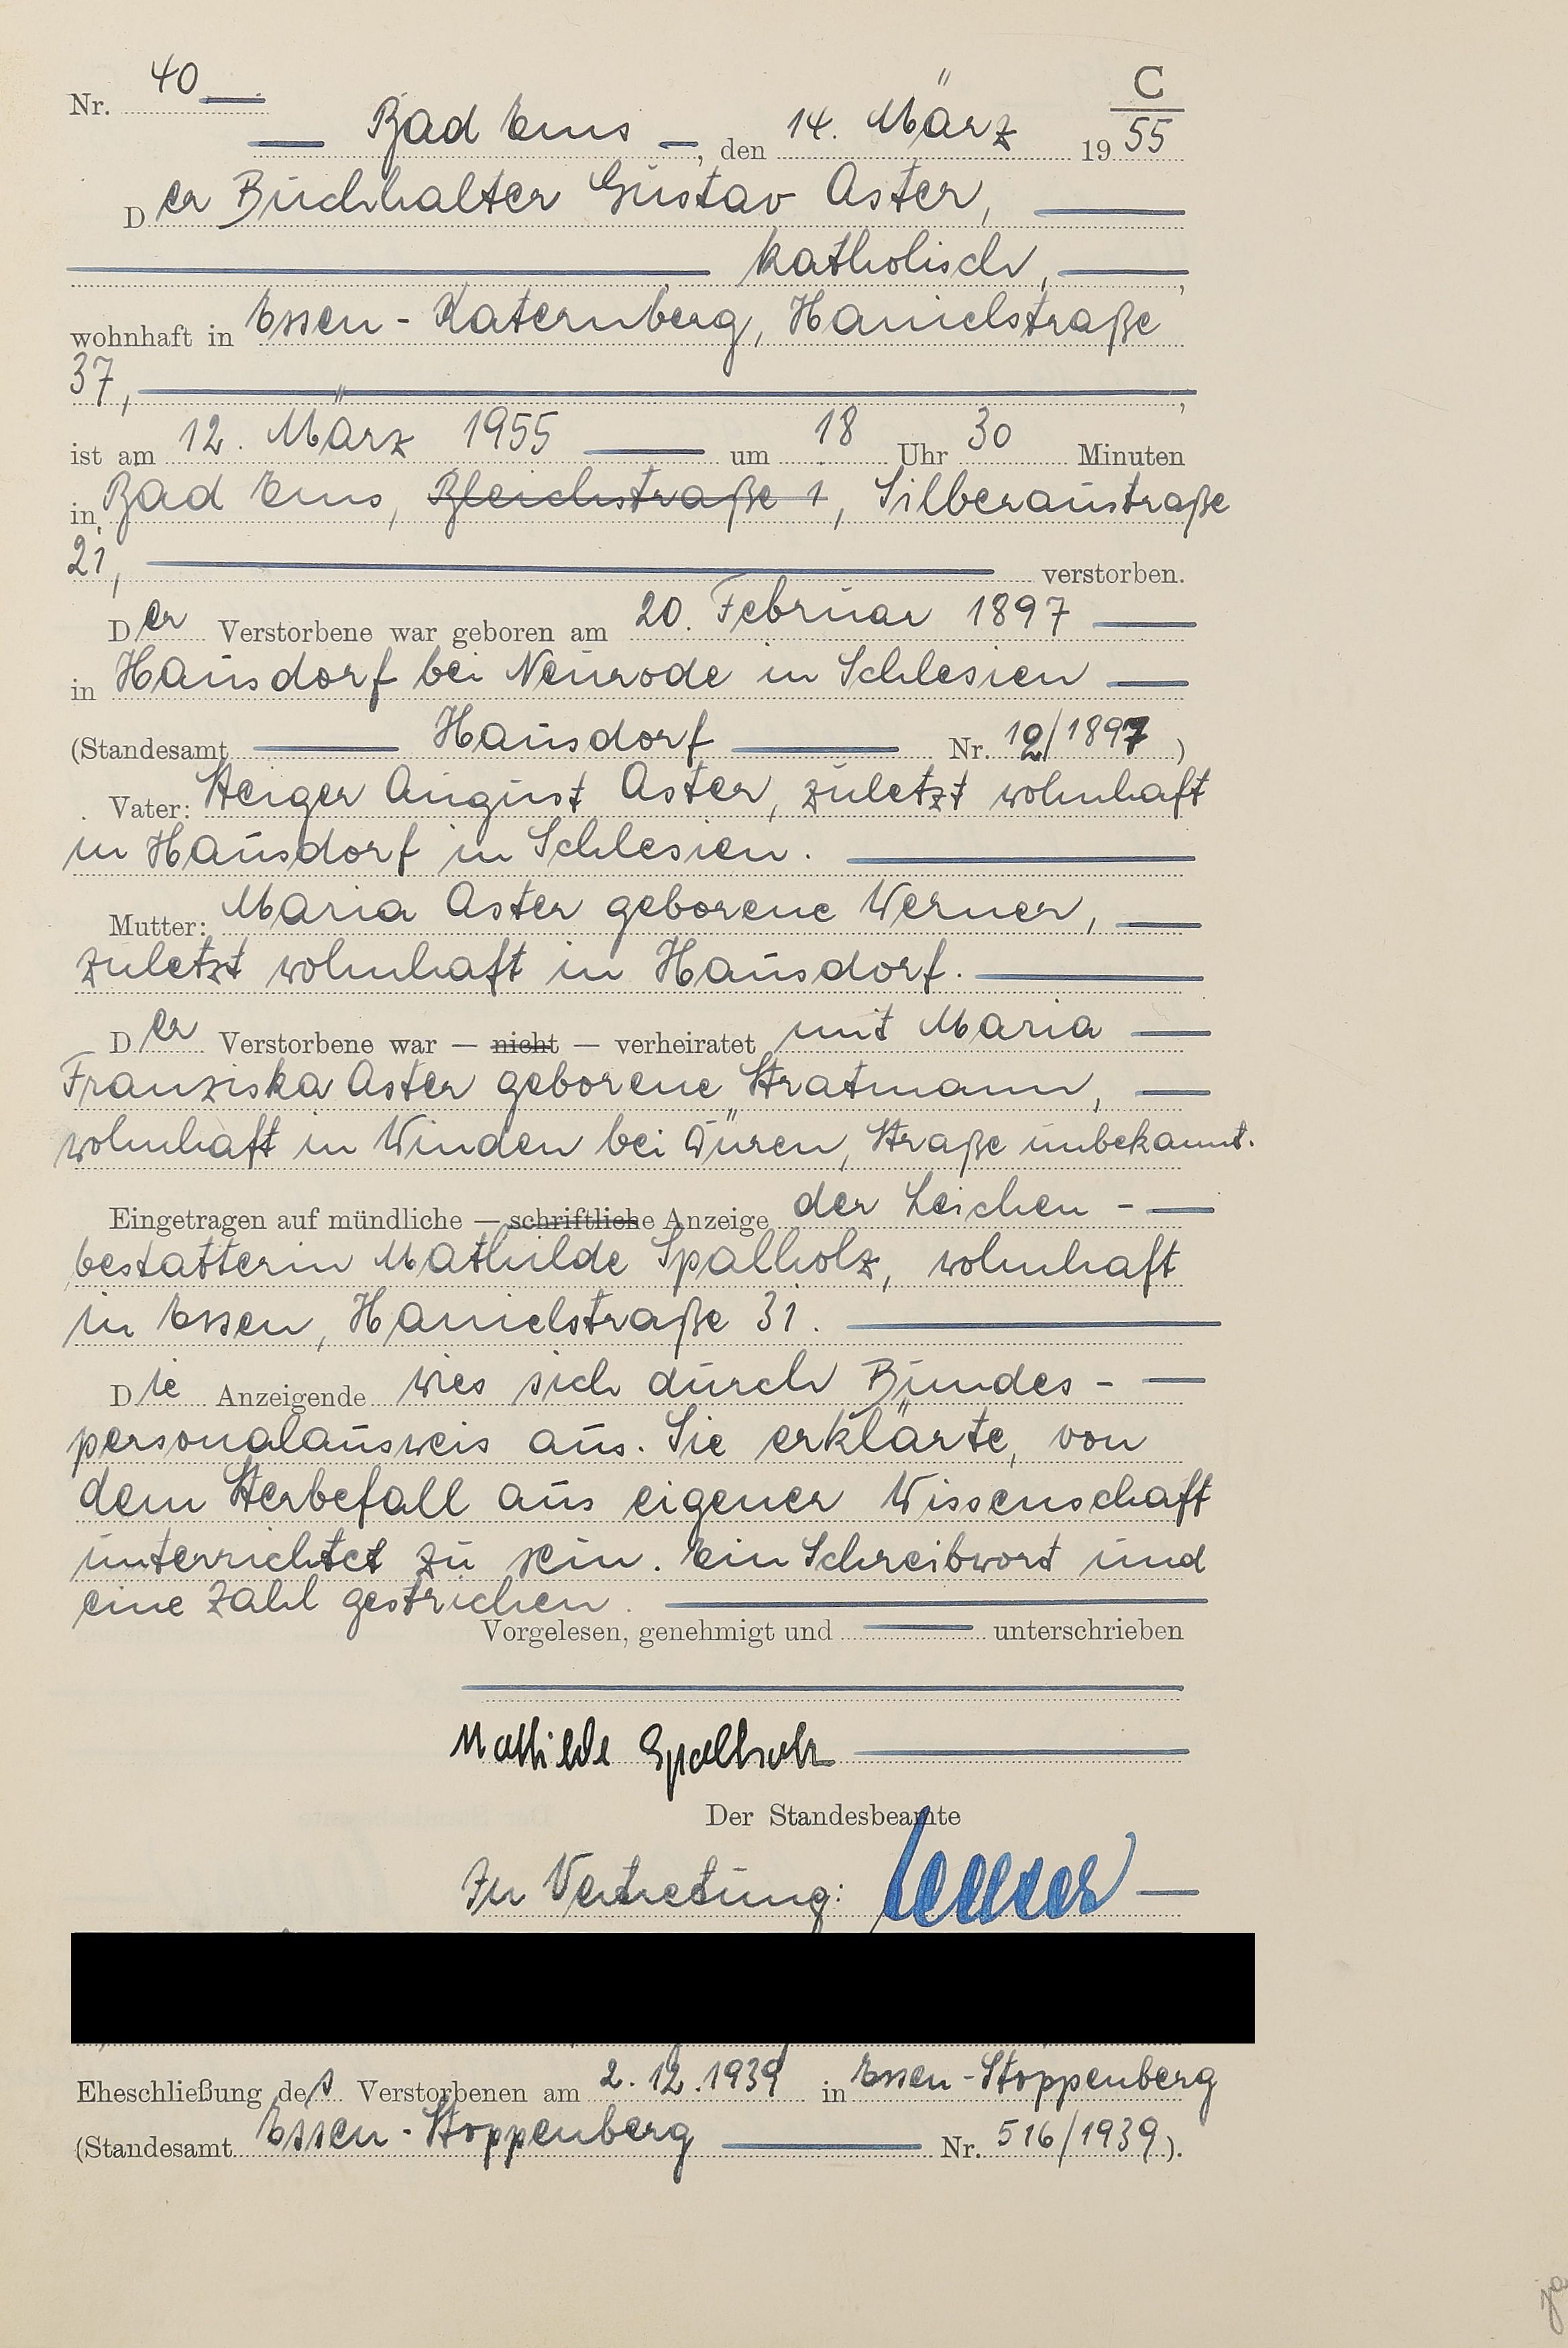 C
Nr. 40
Bad Ems, den 14. März 1955
Der Buchhalter Gustav Aster,
katholisch,
wohnhaft in Essen-Katernberg, Hanielstraße
37,
ist am 12. März 1955 um 18 Uhr 30 Minuten
in Bad Ems, Bleichstraße 1, Silberaustraße
21, verstorben.
Der Verstorbene war geboren am 20. Februar 1897
in Hausdorf bei Neurode in Schlesien
(Standesamt Hausdorf Nr. 12/1897)
Vater: Steiger August Aster, zuletzt wohnhaft
in Hausdorf in Schlesien.
Mutter: Maria Aster geborene Werner,
zuletzt wohnhaft in Hausdorf.
Der Verstorbene war — nicht — verheiratet mit Maria
Franziska Aster geborene Stratmann,
wohnhaft in Winden bei Düren, Straße unbekannt.
Eingetragen auf mündliche — schriftliche Anzeige der Leichen-
bestatterin Mathilde Spallholz, wohnhaft
in Essen, Hanielstraße 31.
Die Anzeigende wies sich durch Bundes-
personalausweis aus. Sie erklärte, von
dem Sterbefall aus eigener Wissenschaft
unterrichtet zu sein. Ein Schreibwort und
eine Zahl gestrichen.
Vorgelesen, genehmigt und unterschrieben
Mathilde Spallholz
Der Standesbeamte
In Vertretung:
Eheschließung des Verstorbenen am 2.12.1939 in Essen-Stoppenberg
(Standesamt Essen-Stoppenberg Nr. 516/1939).